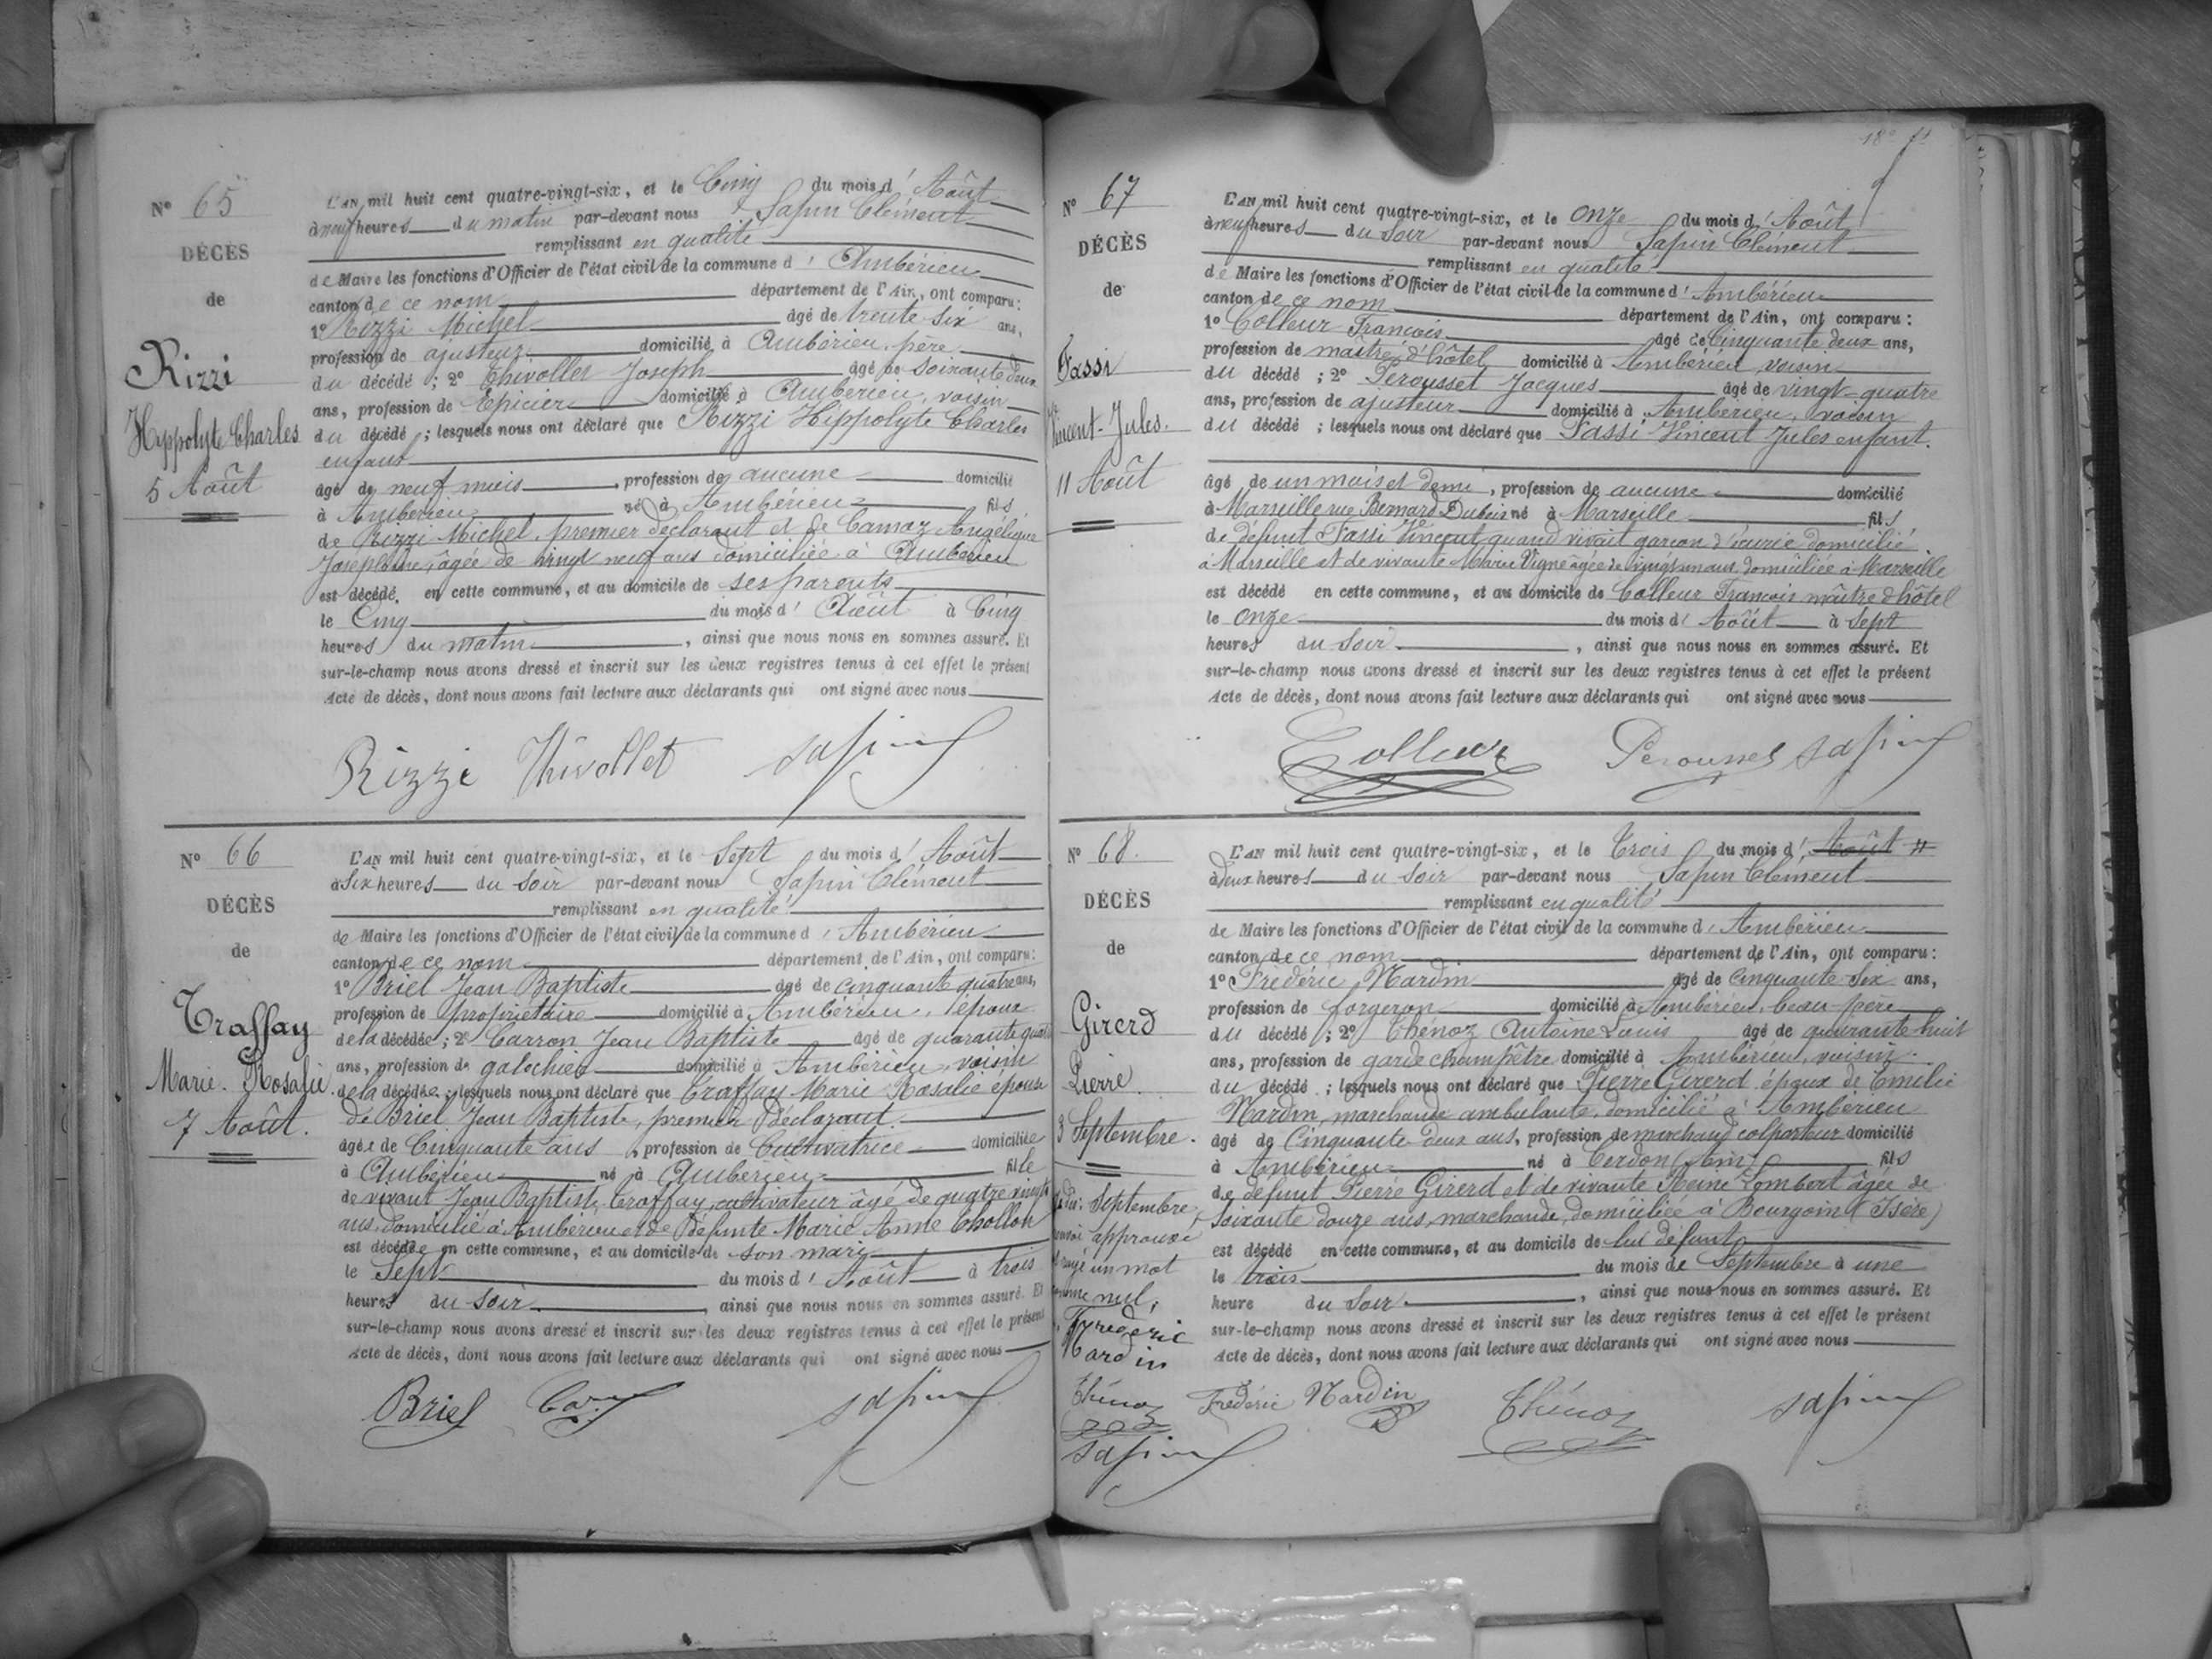 Nº 65
DÉCÈS
de
Rizzi
Hippolyte Charles
5 Août
L'AN mil huit cent quatre-vingt-six, et le Cinq du mois d' Août
à neuf heures du matin par-devant nous Sapin Clément
remplissant en qualité
de Maire les fonctions d'Officier de l'état civil de la commune d' Ambérieu
canton de ce nom département de l'Ain, ont comparu :
1º Rizzi Michel âgé de trente six ans,
profession de ajusteur domicilié à Ambérieu, père
du décédé ; 2º Thivollet Joseph âgé de soixante deux
ans, profession de Epicier domicilié à Ambérieu, voisin
du décédé ; lesquels nous ont déclaré que Rizzi Hippolyte Charles
enfant
âgé de neuf mois, profession de aucune domicilié
à Ambérieu né à Ambérieu fils
de Rizzi Michel, premier déclarant et de Camoz Angélique
Joséphine, âgée de vingt neuf ans domiciliée à Ambérieu
est décédé en cette commune, et au domicile de ses parents
le Cinq du mois d' Août à Cinq
heures du matin, ainsi que nous nous en sommes assuré. Et
sur-le-champ nous avons dressé et inscrit sur les deux registres tenus à cet effet le présent
Acte de décès, dont nous avons fait lecture aux déclarants qui ont signé avec nous
Rizzi Thivollet Sapin
Nº 66
DÉCÈS
de
Traffay
Marie Rosalie.
7 Août.
L'AN mil huit cent quatre-vingt-six, et le Sept du mois d' Août
à Six heures du Soir par-devant nous Sapin Clément
remplissant en qualité
de Maire les fonctions d'Officier de l'état civil de la commune d' Ambérieu
canton de ce nom département de l'Ain, ont comparu :
1º Briel Jean Baptiste âgé de cinquante quatre ans,
profession de propriétaire domicilié à Ambérieu, époux
de la décédée ; 2º Carron Jean Baptiste âgé de quarante quatre
ans, profession de galochier domicilié à Ambérieu, voisin
de la décédée ; lesquels nous ont déclaré que Traffay Marie Rosalie épouse
de Briel Jean Baptiste, premier Déclarant
âgée de Cinquante ans, profession de Cultivatrice domiciliée
à Ambérieu né à Ambérieu fille
de vivant Jean Baptiste Traffay, cultivateur âgé de quatre vingts
ans, domicilié à Ambérieu et de Défunte Marie Anne Chollon
est décédée en cette commune, et au domicile de son mari
le Sept du mois d' Août à trois
heures du soir, ainsi que nous nous en sommes assuré. Et
sur-le-champ nous avons dressé et inscrit sur les deux registres tenus à cet effet le présent
Acte de décès, dont nous avons fait lecture aux déclarants qui ont signé avec nous
Briel Sapin
18e
Nº 67
DÉCÈS
de
Fassi
Vincent-Jules.
11 Août
L'AN mil huit cent quatre-vingt-six, et le onze du mois d' Août
à neuf heures du Soir par-devant nous Sapin Clément
remplissant en qualité
de Maire les fonctions d'Officier de l'état civil de la commune d' Ambérieu
canton de ce nom département de l'Ain, ont comparu :
1º Colleur François âgé de Cinquante deux ans,
profession de maître d'hôtel domicilié à Ambérieu voisin
du décédé ; 2º Perousset Jacques âgé de vingt-quatre
ans, profession de ajusteur domicilié à Ambérieu, voisin
du décédé ; lesquels nous ont déclaré que Fassi Vincent Jules enfant.
âgé de un mois et demi, profession de aucune domicilié
à Marseille rue Bernard Dubois né à Marseille fils
de défunt Fassi Vincent, quand vivait garçon d'écurie domicilié
à Marseille et de vivante Marie Vigne âgée de vingt un ans, domiciliée à Marseille
est décédé en cette commune, et au domicile de Colleur François maître d'hôtel
le onze du mois d' Août à Sept
heures du Soir, ainsi que nous nous en sommes assuré. Et
sur-le-champ nous avons dressé et inscrit sur les deux registres tenus à cet effet le présent
Acte de décès, dont nous avons fait lecture aux déclarants qui ont signé avec nous
Colleur Perousset Sapin
Nº 68.
DÉCÈS
de
Girerd
Pierre.
3 Septembre.
Septembre,
approuvé
rayé un mot
comme nul,
Frédéric
Nardin
Thénoz
Sapin
L'AN mil huit cent quatre-vingt-six, et le Trois du mois d' Août
à deux heures du Soir par-devant nous Sapin Clément
remplissant en qualité
de Maire les fonctions d'Officier de l'état civil de la commune d' Ambérieu
canton de ce nom département de l'Ain, ont comparu :
1º Frédéric Nardin âgé de cinquante-six ans,
profession de forgeron domicilié à Ambérieu, beau-père
du décédé ; 2º Thénoz Antoine Louis âgé de quarante huit
ans, profession de garde champêtre domicilié à Ambérieu, voisin.
du décédé ; lesquels nous ont déclaré que Pierre Girerd époux de Emilie
Nardin, marchande ambulante, domicilié à Ambérieu
âgé de Cinquante-deux ans, profession de marchand colporteur domicilié
à Ambérieu né à Cerdon (Ain) fils
de défunt Pierre Girerd et de vivante Reine Lombart âgée de
Soixante douze ans, marchande, domiciliée à Bourgoin (Isère)
est décédé en cette commune, et au domicile de lui défunt
le trois du mois de Septembre à une
heure du Soir, ainsi que nous nous en sommes assuré. Et
sur-le-champ nous avons dressé et inscrit sur les deux registres tenus à cet effet le présent
Acte de décès, dont nous avons fait lecture aux déclarants qui ont signé avec nous
Frédéric Nardin Thénoz Sapin